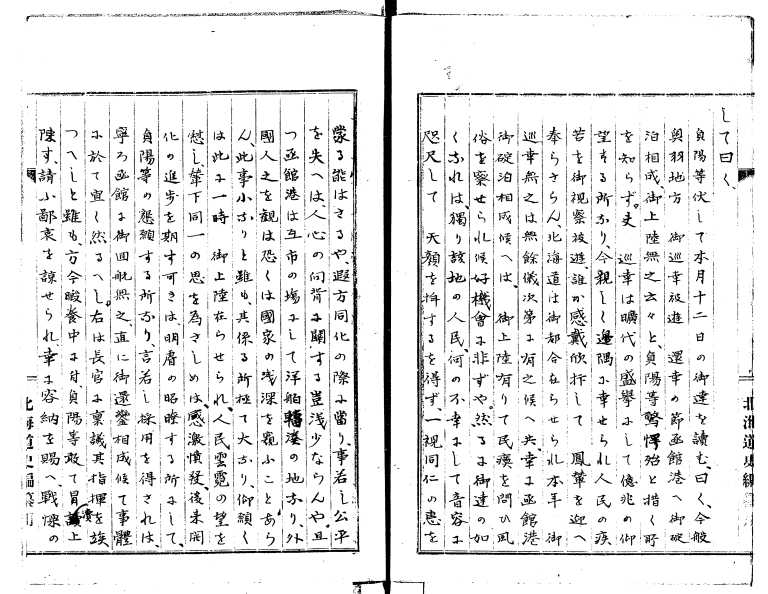 して曰く、
貞陽等伏して本月十二日の御達を讀む、曰く、今般
奥羽地方　御巡幸被遊　還幸の節函館港へ御碇
泊相成、御上陸無之云々と、貞陽等驚愕殆と措く所
を知らず。夫　巡幸は曠代の盛擧にして億兆の仰
望する所なり、今親しく邊隅に幸せられ人民の疾
苦を御視察被遊、誰か感戴欣抃して　鳳輦を迎へ
奉らさらん、北海道は御都合在らせられ本年　御
巡幸無之は無餘儀次第に有之候へ共、幸に函館港
御碇泊相成候へは、御上陸有りて民瘼を問ひ風
俗を察せられ候好機會に非ずや。然るに御達の如
くなれは、獨り該地の人民、何の不幸にして音容に
咫尺して　天顔を拝するを得ず、一視同仁の恵を
蒙る能はさるや、遐方同化の際に當り、事若し公平
を失へは人心の向背に關する豈浅少ならんや。且
つ函館港は互市の場にして洋舶輻湊の地なり、外
國人之を観は恐くは國家の浅深を窺ふことあら
ん、此事小なりと雖も、其係る所極て大なり、仰願く
は此に一時　御上陸在らせられ、人民雲霓の望を
慰し、輦下同一の思を為さしめは、感激憤發、後来開
化の進歩を期す可きは、明膺の昭瞭する所にして、
貞陽等の懇願する所なり、言若し採用を得されは、
寧ろ函館に御回航無之、直に御還鑾相成候て事體
に於て宜く然るへし。右は長官に稟議其指揮を竢
つへしと雖も、方今暇養中に付、貞陽等敢て冒瀆上
陳す、請ふ鄙衷を諒せられ、幸に容納を賜へ、戰慄の
北海道史編纂
北海道史編纂用